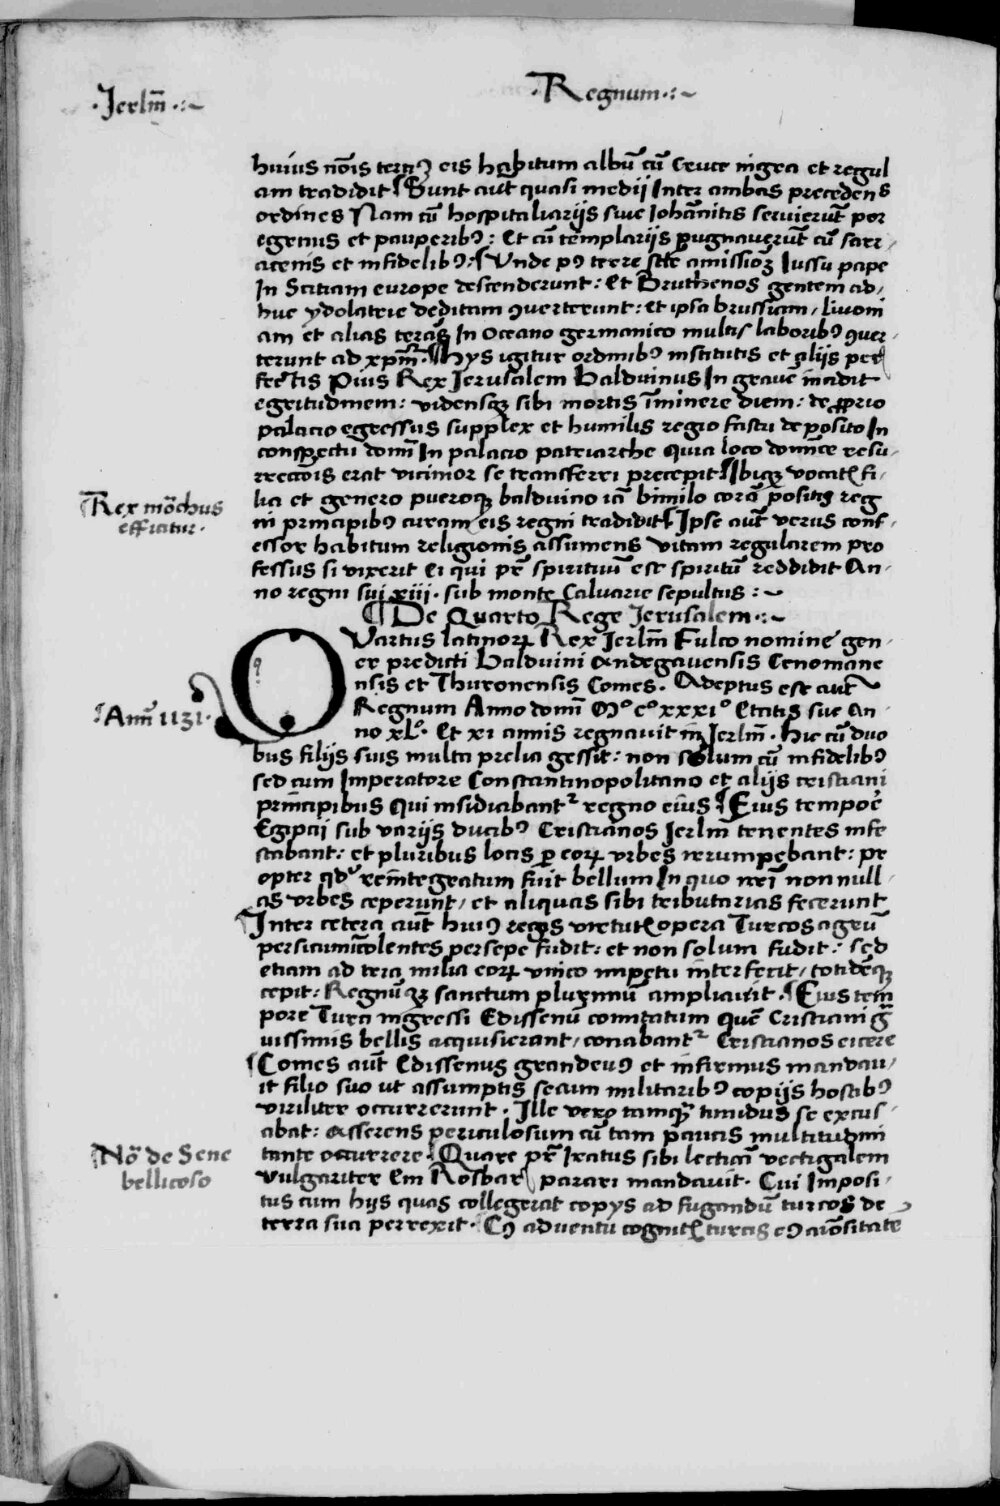 ·Jerlm̄·:~
·Regnum·:~
huius nōis terciꝰ eis habitum albū cū Cruce nigra et regul
am tradidit ¶ Sunt aūt quasi medij Inter ambas precedens
ordines Nam cū hospitalarijs siue Iohānitis seruierūt per
egrinis et pauperibꝰ: Et cū templarijs pugnauerūt cū sarr
acenis et infidelibꝰ: ¶ Vnde pꝰ terre sctē amissioꝫ Iussu pape
In Scitiam europe descenderunt: Et Bruthenos gentem ad/
huc ydolatrie deditam ꝯuerterunt: et ipsa brussiam, liuoni
am et alias terras In Oceano germanico multis laboribꝰ ꝯuer
terunt ad xpm̄· ¶ Hys igitur ordinibꝰ institutis et alijs per
fectis Pius Rex Jerusalem Balduinus In grauē incidit
egritudinem: vidensqꝫ sibi mortis īminere diem: de ꝓprio
palacio egressus supplex et humilis regio fastu deposito In
conspectu domī In palacio patriarche Quia loco domīce resu
rrectōis erat vicinior se transferri precepit ¶ Ibiqꝫ vocatꝭ fi/
lia et genero pueroqꝫ balduino iā bimulo corā positis reg
ni principibꝰ curam eis regni tradidit ¶ Ipse aūt verus conf/
essor habitum religionis assumens vitam regularem pro
fessus si vixerit Ei qui pr̄ spirituū est spiritū reddidit An-
no regni sui xiii· sub monte Caluarie sepultus :~
¶Rex mōchus
efficitur·
¶ De Quarto Rege Jerusalem·:~
QVartus latinoꝝ Rex Jerlm̄ Fulco nomine gen-
er predicti Balduini Andegauensis Cenomane
nsis et Thuronensis Comes· Adeptus est aūt
Regnum Anno domī Mº cº xxxiº Etatis sue An-
no xlº· Et xi annis regnauit in Jerlm̄· hic cū duo
¶Ann̄ 1131·
bus filijs suis multa prelia gessit: non solum cū infidelibꝰ
sed cum Imperatore Constantinopolitano et alijs cristiani
principibus Qui insidiabantʳ regno eius ¶ Eius tempoē
Egiptij sub varijs ducibꝰ Cristianos Jerlm̄ tenentes infe
stabant: et pluribus locis ꝑ eoꝝ vrbes irrumpebant: pr
opter qd̓ reintegratum fuit bellum In quo nr̄i non null/
as vrbes ceperunt, et aliquas sibi tributarias fecerunt
¶Inter cetera aūt huiꝰ regis virtutꝭ opera Turcos agrū
persicum īcolentes persepe fudit: et non solum fudit: sed
etiam ad tria milia eoꝝ vnico impetu interfecit, totidēqꝫ
cepit: Regnūqꝫ sanctum plurimū ampliauit· ¶ Eius tem
pore Turci ingressi Edissenū comitatum quē Cristiani gͣ
uissimis bellis acquisierant, conabantʳ Cristianos eicere
¶Comes aūt Edissenus grandeuꝰ et infirmus mandau/
it filio suo ut assumptis secum militaribꝰ copijs hostibꝰ
viriliter occurrerunt· Ille vero tamqͣꝫ timidus se excus/
abat: asserens periculosum cū tam paucis multitudini
tante occurrere· ¶Quare pr̄ Iratus sibi lecticā vectigalem
vulgariter Em Rosbar parari mandauit· Cui Imposi-
tus cum hijs quas collegerat copys ad fugandū turcos de
terra sua perrexit· ¶Cꝰ aduentu cognitꝭ turcis eꝰ aīositatē
¶Nō de Sene
bellicoso